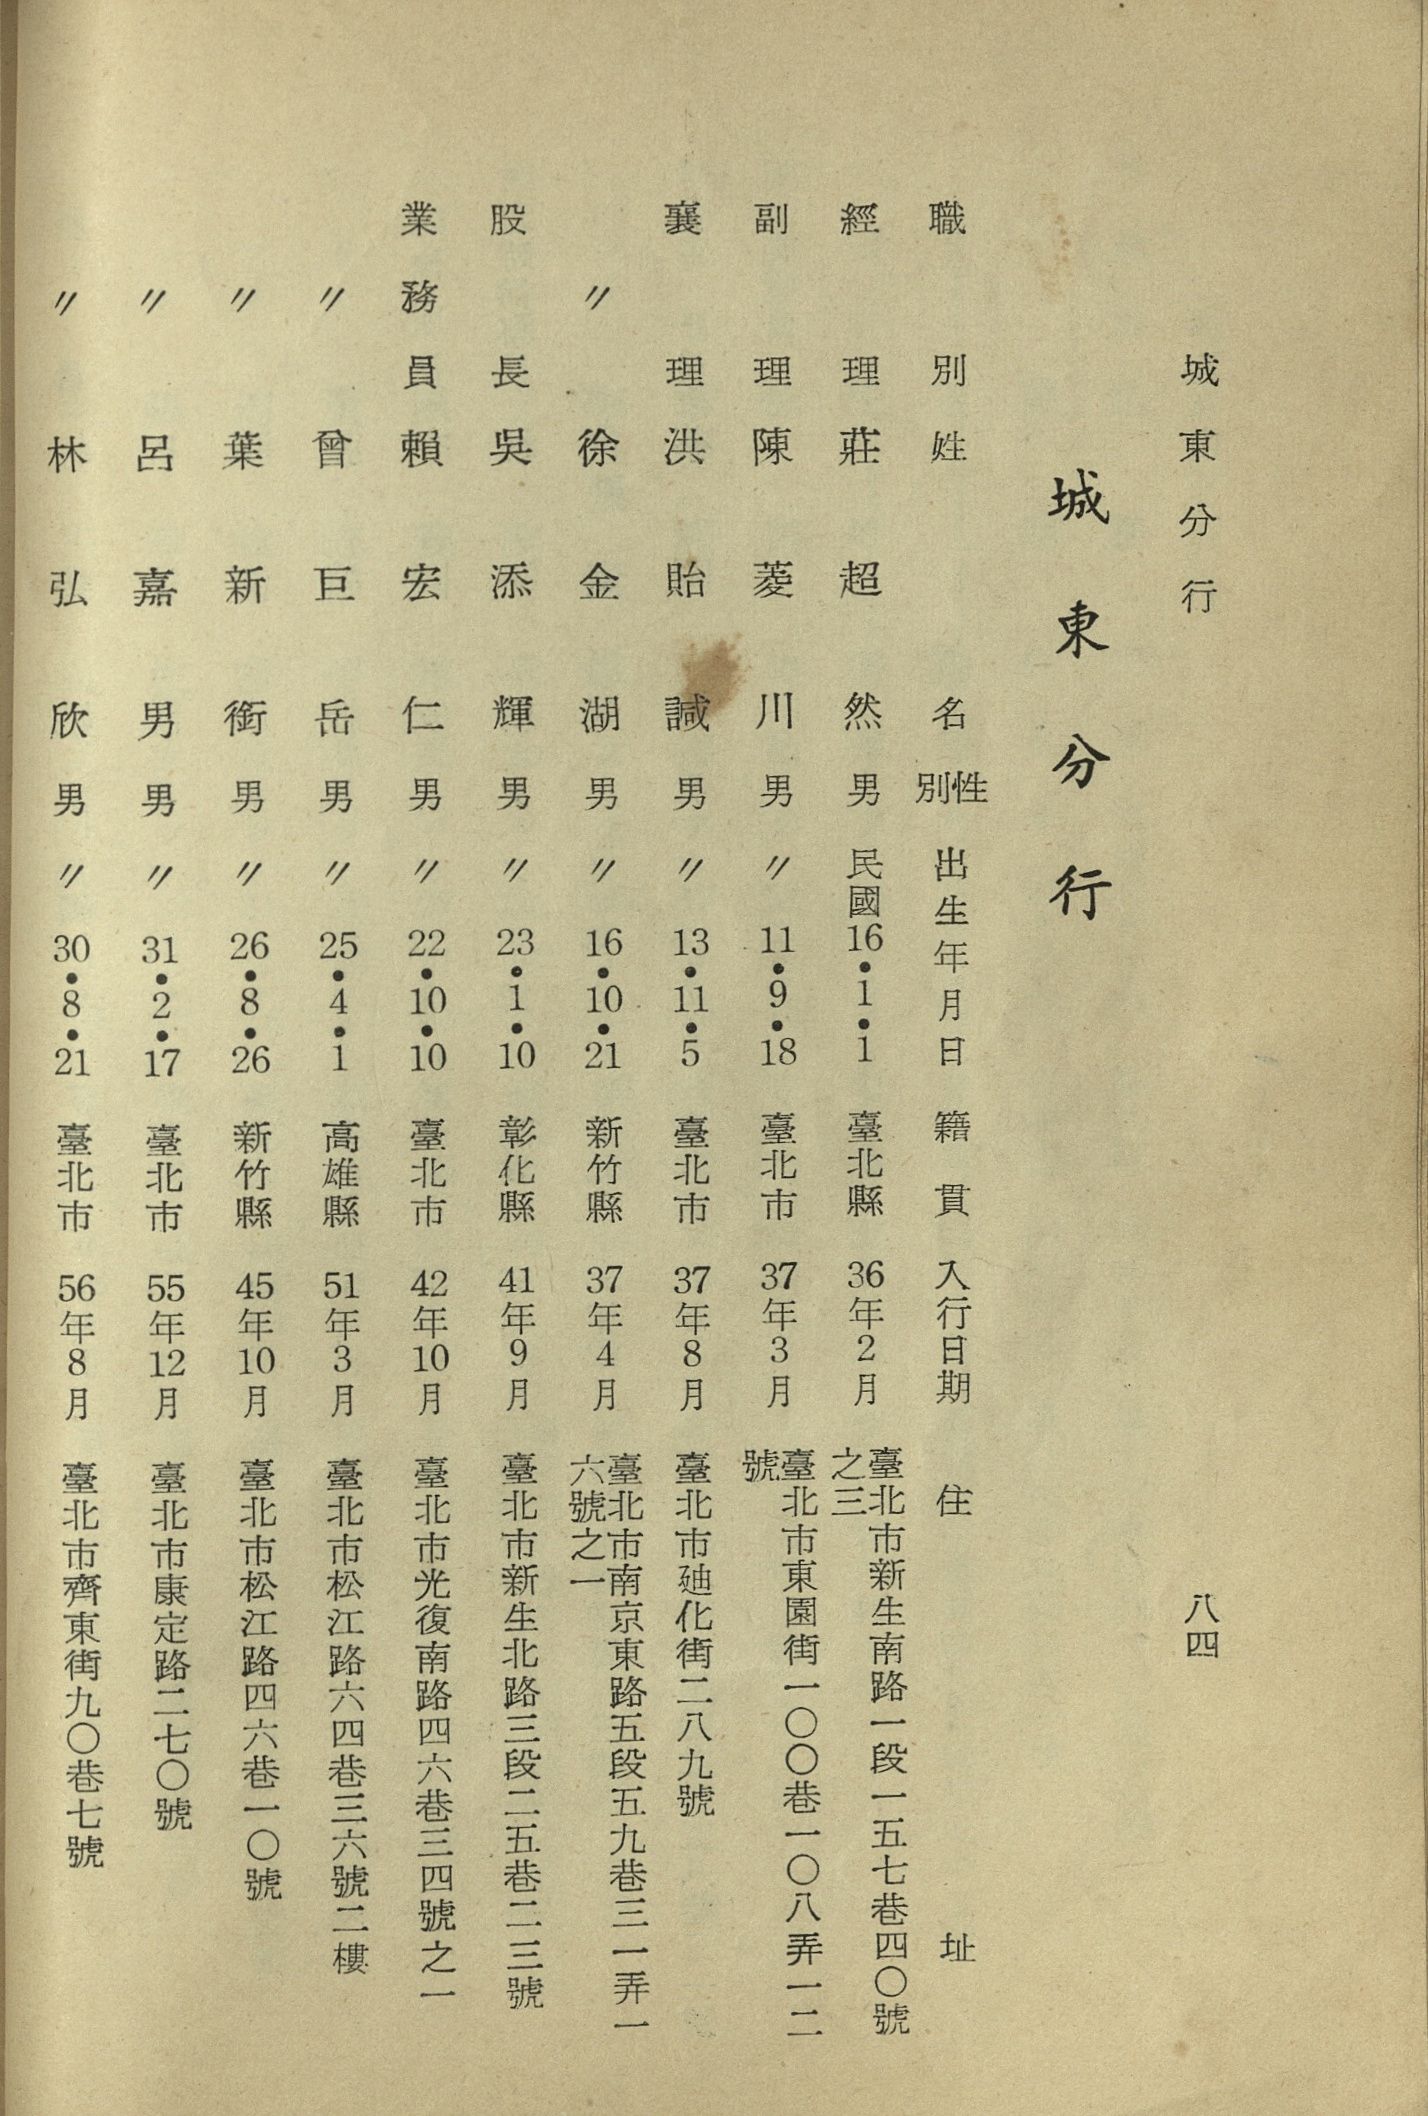 城東分行
八四
城東分行
職別 姓名 性別 出生年月日 籍貫 入行日期 住址
經理 莊超然 男 民國16•1•1 臺北縣 36年2月 臺北市新生南路一段一五七巷四〇號之三
副理 陳菱川 男 〃11•9•18 臺北市 37年3月 臺北市東園街一〇〇巷一〇八弄一二號
襄理 洪貽諴 男 〃13•11•5 臺北市 37年8月 臺北市廸化街二八九號
〃 徐金湖 男 〃16•10•21 新竹縣 37年4月 臺北市南京東路五段五九巷三一弄一六號之一
股長 吳添輝 男 〃23•1•10 彰化縣 41年9月 臺北市新生北路三段二五巷二三號
業務員 賴宏仁 男 〃22•10•10 臺北市 42年10月 臺北市光復南路四六巷三四號之一
〃 曾巨岳 男 〃25•4•1 高雄縣 51年3月 臺北市松江路六四巷三六號二樓
〃 葉新銜 男 〃26•8•26 新竹縣 45年10月 臺北市松江路四六巷一〇號
〃 呂嘉男 男 〃31•2•17 臺北市 55年12月 臺北市康定路二七〇號
〃 林弘欣 男 〃30•8•21 臺北市 56年8月 臺北市齊東街九〇巷七號